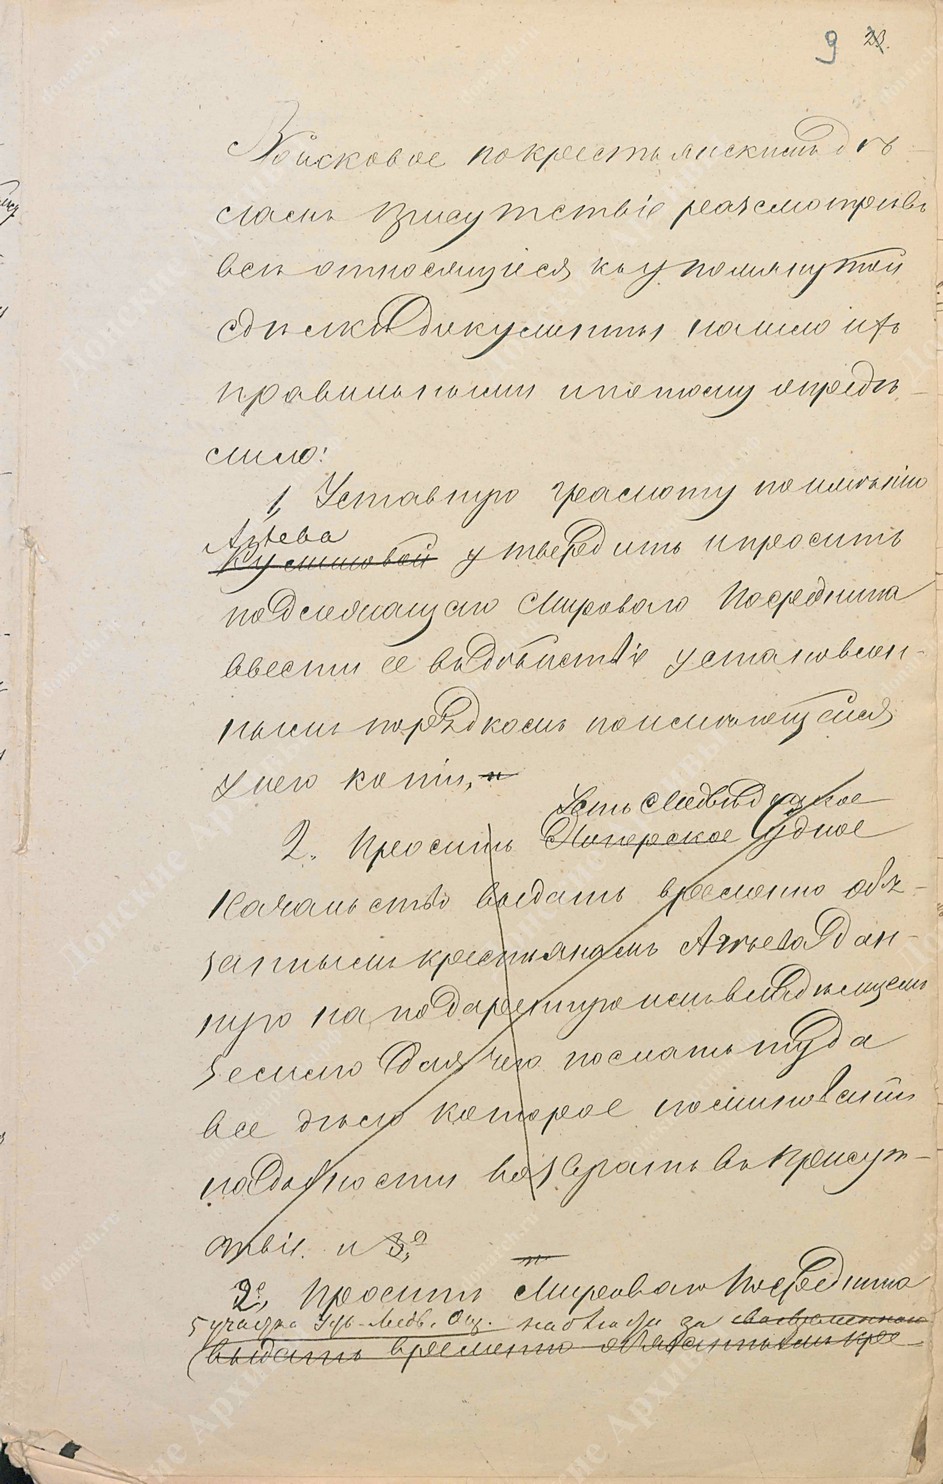 9 23.
Войсковое по крестьянскимъ дѣ-
ламъ Присутствіе разсмотрѣвъ
всѣ относящіеся къ упомянутой
сдѣлкѣ документы нашло ихъ
правильными и потому опредѣ-
лило:
1, Уставную грамоту по имѣнію
Агѣева
Кумшовой утвердить и просить
подлежащаго Мироваго Посредника
ввести ее въ дѣйствіе установлен-
нымъ порядкомъ по имѣющейся
у него копіи,
Усть Медвѣдицкое
2. Просить Хоперское Судное
Начальство выдать временно обя-
заннымъ крестьянамъ Агѣева дан-
ную на подаренную имъ владѣльцемъ
землю для чего послать туда
все дѣло которое по миновеніи
надобности возвратить въ Присут-
ствіе. и 3,
2, Просить Мироваго Посредника
5 участка Усть-Медв. Окр. наблюсти за
выдать временно обязаннымъ кре-